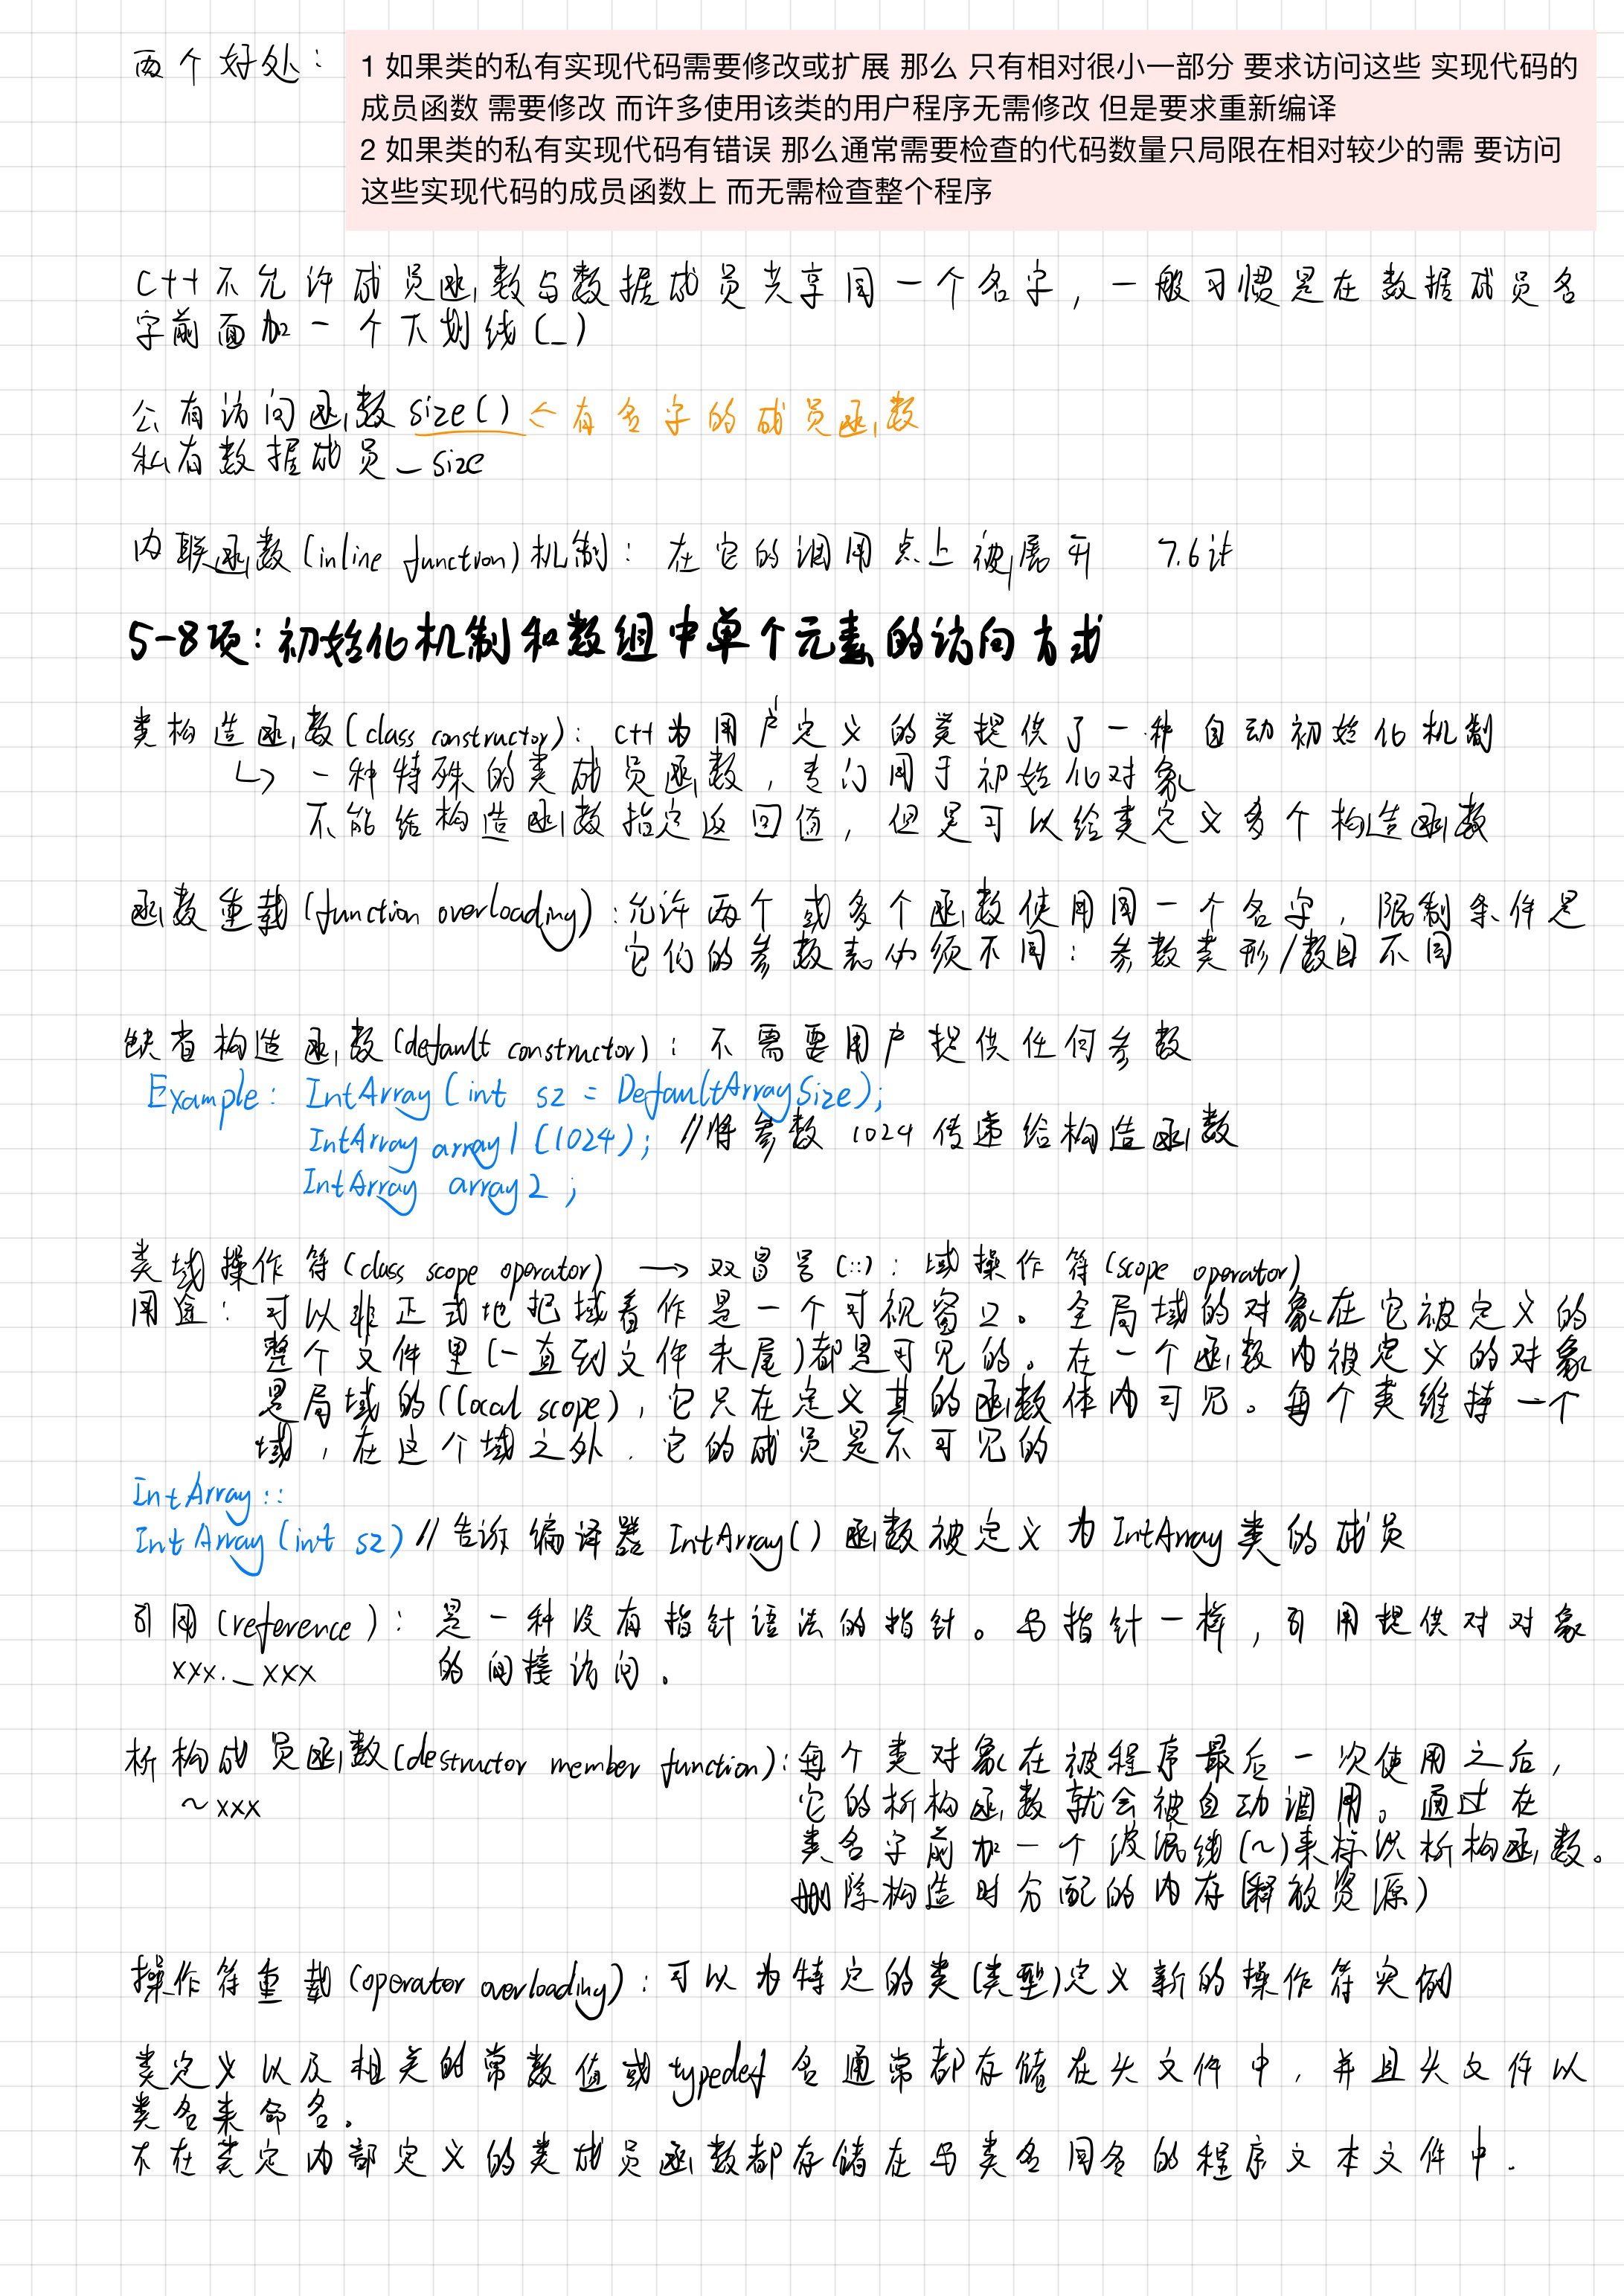 两个好处：
1 如果类的私有实现代码需要修改或扩展 那么 只有相对很小一部分 要求访问这些 实现代码的
成员函数 需要修改 而许多使用该类的用户程序无需修改 但是要求重新编译
2 如果类的私有实现代码有错误 那么通常需要检查的代码数量只局限在相对较少的需 要访问
这些实现代码的成员函数上 而无需检查整个程序
C++不允许成员函数与数据成员共享同一个名字，一般习惯是在数据成员名
字前面加一个下划线(_)
公有访问函数size() <有名字的成员函数
私有数据成员_size
内联函数(inline function)机制：在它的调用点上被展开 7.6讲
5-8项：初始化机制和数组中单个元素的访问方式
类构造函数(class constructor)：C++为用户定义的类提供了一种自动初始化机制
↳ 一种特殊的类成员函数，专门用于初始化对象
不能给构造函数指定返回值，但是可以给类定义多个构造函数
函数重载(function overloading)：允许两个或多个函数使用同一个名字，限制条件是
它们的参数表必须不同：参数类形/数目不同
缺省构造函数(default constructor)：不需要用户提供任何参数
Example: IntArray(int sz = DefaultArraySize);
IntArray array1(1024); //将参数1024传递给构造函数
IntArray array2;
类域操作符(class scope operator) → 双冒号(::)：域操作符(scope operator)
用途：可以非正式地把域看作是一个可视窗口。全局域的对象在它被定义的
整个文件里(一直到文件末尾)都是可见的。在一个函数内被定义的对象
是局域的(local scope)，它只在定义其的函数体内可见。每个类维持一个
域，在这个域之外，它的成员是不可见的
IntArray::
IntArray(int sz) //告诉编译器IntArray()函数被定义为IntArray类的成员
引用(reference)：是一种没有指针语法的指针。与指针一样，引用提供对对象
xxx._xxx 的间接访问。
析构成员函数(destructor member function)：每个类对象在被程序最后一次使用之后，
~xxx 它的析构函数就会被自动调用。通过在
类名字前加一个波浪线(~)来标识析构函数。
删除构造时分配的内存(释放资源)
操作符重载(operator overloading)：可以为特定的类(类型)定义新的操作符实例
类定义以及相关的常数值或typedef名通常都存储在头文件中，并且头文件以
类名来命名。
不在类定内部定义的类成员函数都存储在与类名同名的程序文本文件中.